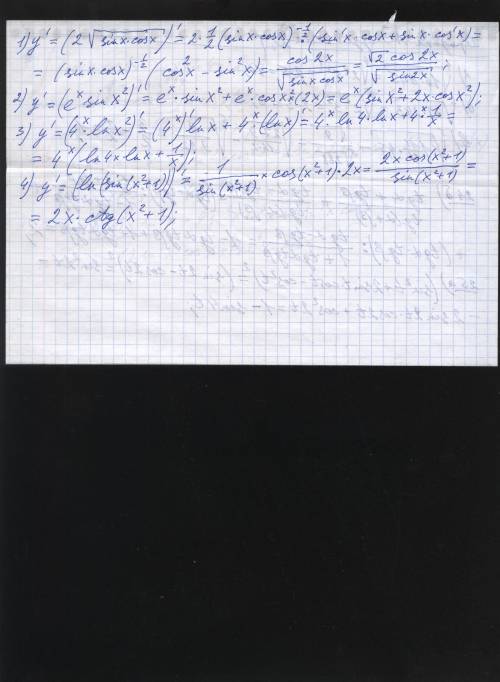 1) y' = (2√(sinx·cosx))' = 2·1/2 (sinx·cosx)^(-1/2)·(sin'x·cosx + sinx·cos'x) =
= (sinx·cosx)^(-1/2) (cos²x - sin²x) = cos2x/√(sinx cosx) = √2 cos2x/√(sin2x);
2) y' = (e^x sinx²)' = e^x·sinx² + e^x·cosx²·(2x) = e^x(sinx² + 2x·cosx²);
3) y' = (4^x·lnx)' = (4^x)' lnx + 4^x·(lnx)' = 4^x·ln4·lnx + 4^x·1/x =
= 4^x (ln4·lnx + 1/x);
4) y' = (ln(sin(x²+1)))' = 1/sin(x²+1) × cos(x²+1)·2x = 2x cos(x²+1)/sin(x²+1) =
= 2x·ctg(x²+1);